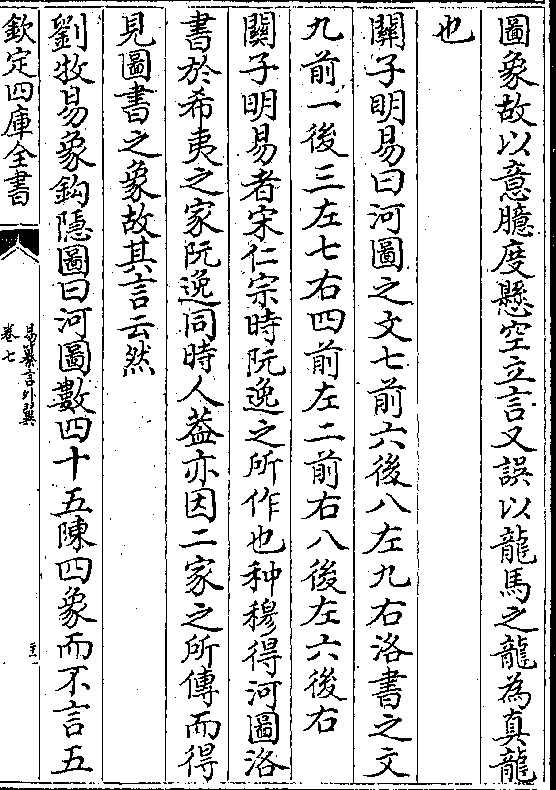 圖象故以意臆度懸空立言又誤以龍馬之龍為真龍
也
關子明易曰河圖之文七前六後八左九右洛書之文
九前一後三左七右四前左二前右八後左六後右
關子明易者宋仁宗時阮逸之所作也种穆得河圖洛
書於希夷之家阮逸同時人葢亦因二家之所傳而得
見圖書之象故其言云然
劉牧易象鈎隱圖曰河圖數四十五陳四象而不言五
欽定四庫全書
易纂言外翼
卷七